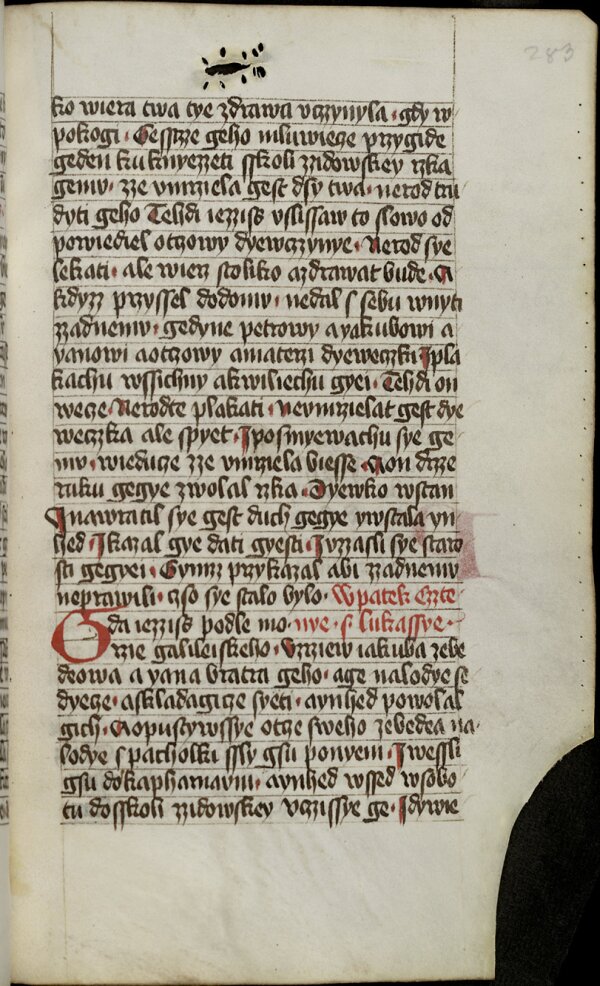 283
ko wiera twa tye zdrawu vczynyla · gdy w
pokogi · Gessťze geho mluwieᵹe przygide
geden kuknyezzeti sskoli zzidowskey rzka
gemu · ze vmrziela gest dcy twa · nerod tru
dyti geho Tehdi iezzis vslissaw to slowo od
powiediel otczowy dyewczynye · Nerod sye
lekati · ale wierz toliko a zdrawat bude · A
kdyzz przyssel dodomu · nedal s sebu wnyti
zzadnemu · gedyne petrowy a yakubowi a
yanowi aotczowy amaterzi dyeweczki Ipla
kachu wssichny akwiliechu gyei · Tehdi on
wece · Nerodte plakati · Neumrzielat gest dye
weczka ale spyet · Iposmyewachu sye ge
mu · wieduce zze vmrziela biesse · Aon drze
ruku gegye zwolal rzka · Dyewko wstan
Inawratil sye gest duch gegye ywstala yn
hed · Ikazal gye dati gyesti · Iuzzasli sye staro
sti gegyei · Gymz przykazal abi zzadnemu
neprawili · czso sye stalo bylo · W patek Czte
Gda iezzis podle mo · nye · s lukassye ·
rzie galileiskeho · Vrziew iakuba zebe
deowa a yana bratra geho · age nalodye se
dyece · askladagice syeti · aynhed powolal
gich · Aopustywssye otce sweho zebedea na
lodye s pacholki ssly gsu ponyem · I wessli
gsu dokapharnaum · aynhed wssed wsobo
tu dosskoli zzidowskey vczissye ge · Idywie